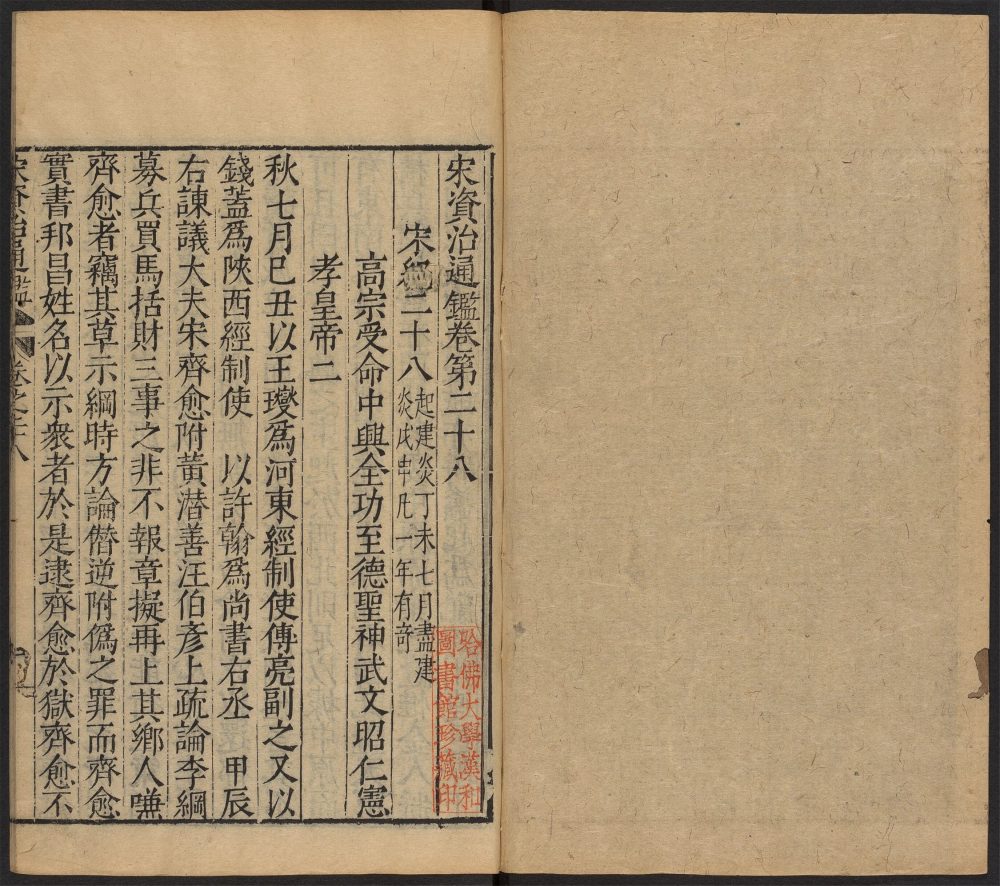 宋資治通鑑卷第二十八
宋紀二十八
起建炎丁未七月盡建
炎戊申凡一年有奇
高宗受命中興全功至德聖神武文昭仁憲
孝皇帝二
秋七月己丑以王𤫉爲河東經制使傅亮副之又以
錢蓋爲陜西經制使 以許翰爲尚書右丞 甲辰
右諫議大夫宋齊愈附黃潛善汪伯彥上疏論李綱
募兵買馬括財三事之非不報章擬再上其鄉人嗛
齊愈者竊其草示綱時方論僭逆附僞之罪而齊愈
實書邦昌姓名以示衆者於是逮齊愈於獄齊愈不
宋資治通鑑 卷之二十八
哈佛大學漢和
圖書館珍藏印